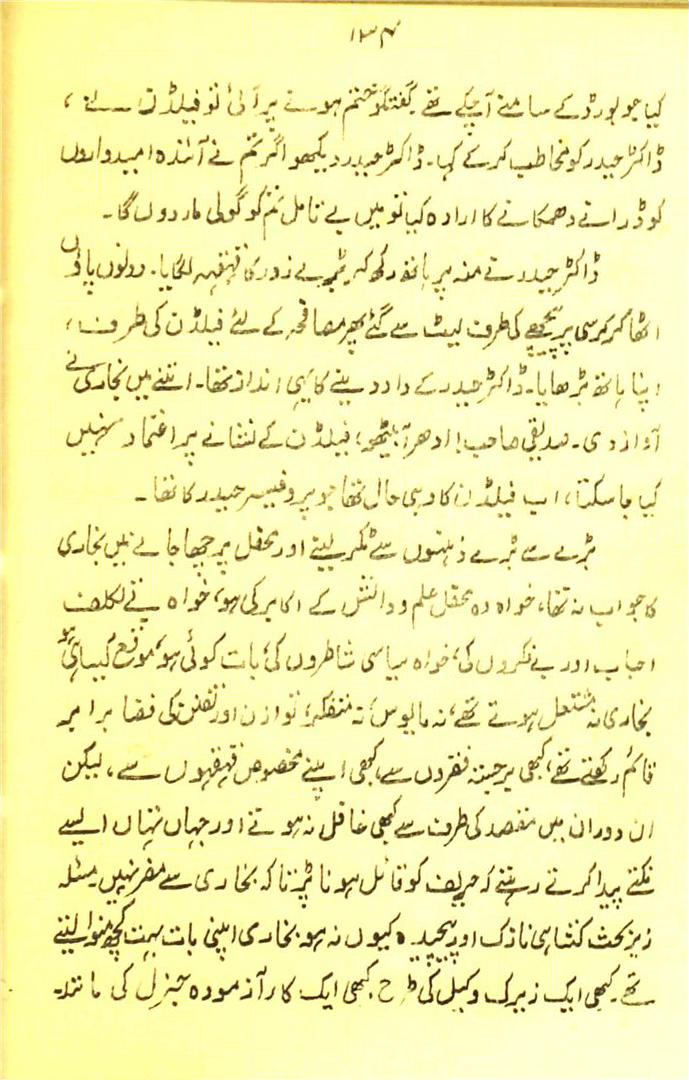 ۱۳۴
کیا جو بورڈ کے سامنے آچکے تھے۔ گفتگو ختم ہونے پر آئی تو فیلڈن نے،
ڈاکٹر حیدر کو مخاطب کر کے کہا۔ ڈاکٹر حیدر دیکھو اگر تم نے آئندہ امیدواروں
کو ڈرانے دھمکانے کا ارادہ کیا تو میں بے تامل تم کو گولی مار دوں گا۔
ڈاکٹر حیدر نے منہ پر ہاتھ رکھ کر بڑے زور کا قہقہہ لگایا۔ دونوں پاؤں
اٹھا کر کرسی پر پیچھے کی طرف لیٹ سے گئے پھر مصافحہ کے لئے فیلڈن کی طرف،
اپنا ہاتھ بڑھایا۔ ڈاکٹر حیدر کے داد دینے کا یہی انداز تھا۔ اتنے میں بخاری نے
آواز دی۔ صدیقی صاحب! ادھر آ بیٹھو، فیلڈن کے نشانے پر اعتماد نہیں
کیا جا سکتا، اب فیلڈن کا وہی حال تھا جو پروفیسر حیدر کا تھا۔
بڑے سے بڑے ذہنوں سے ٹکر لینے اور محفل پر چھا جانے میں بخاری
کا جواب نہ تھا، خواہ وہ محفل علم و دانش کے اکابر کی ہو، خواہ بے تکلف
احباب اور بے فکروں کی، خواہ سیاسی شاطروں کی، بات کوئی ہو، موقع کیسا ہی ہو
بخاری نہ مشتعل ہوتے تھے، نہ مایوس، نہ متفکر، توازن اور تفنن کی فضا برابر
قائم رکھتے تھے، کبھی برجستہ فقروں سے، کبھی اپنے مخصوص قہقہوں سے، لیکن
ان دوران میں مقصد کی طرف سے کبھی غافل نہ ہوتے اور جہاں تہاں ایسے
نکتے پیدا کرتے رہتے کہ حریف کو قائل ہونا پڑتا کہ بخاری سے مفر نہیں۔ مسئلہ
زیر بحث کتنا ہی نازک اور پیچیدہ کیوں نہ ہو بخاری اپنی بات بہت کچھ منوا لیتے
تھے۔ کبھی ایک زیرک وکیل کی طرح، کبھی ایک کار آزمودہ جنرل کی مانند۔